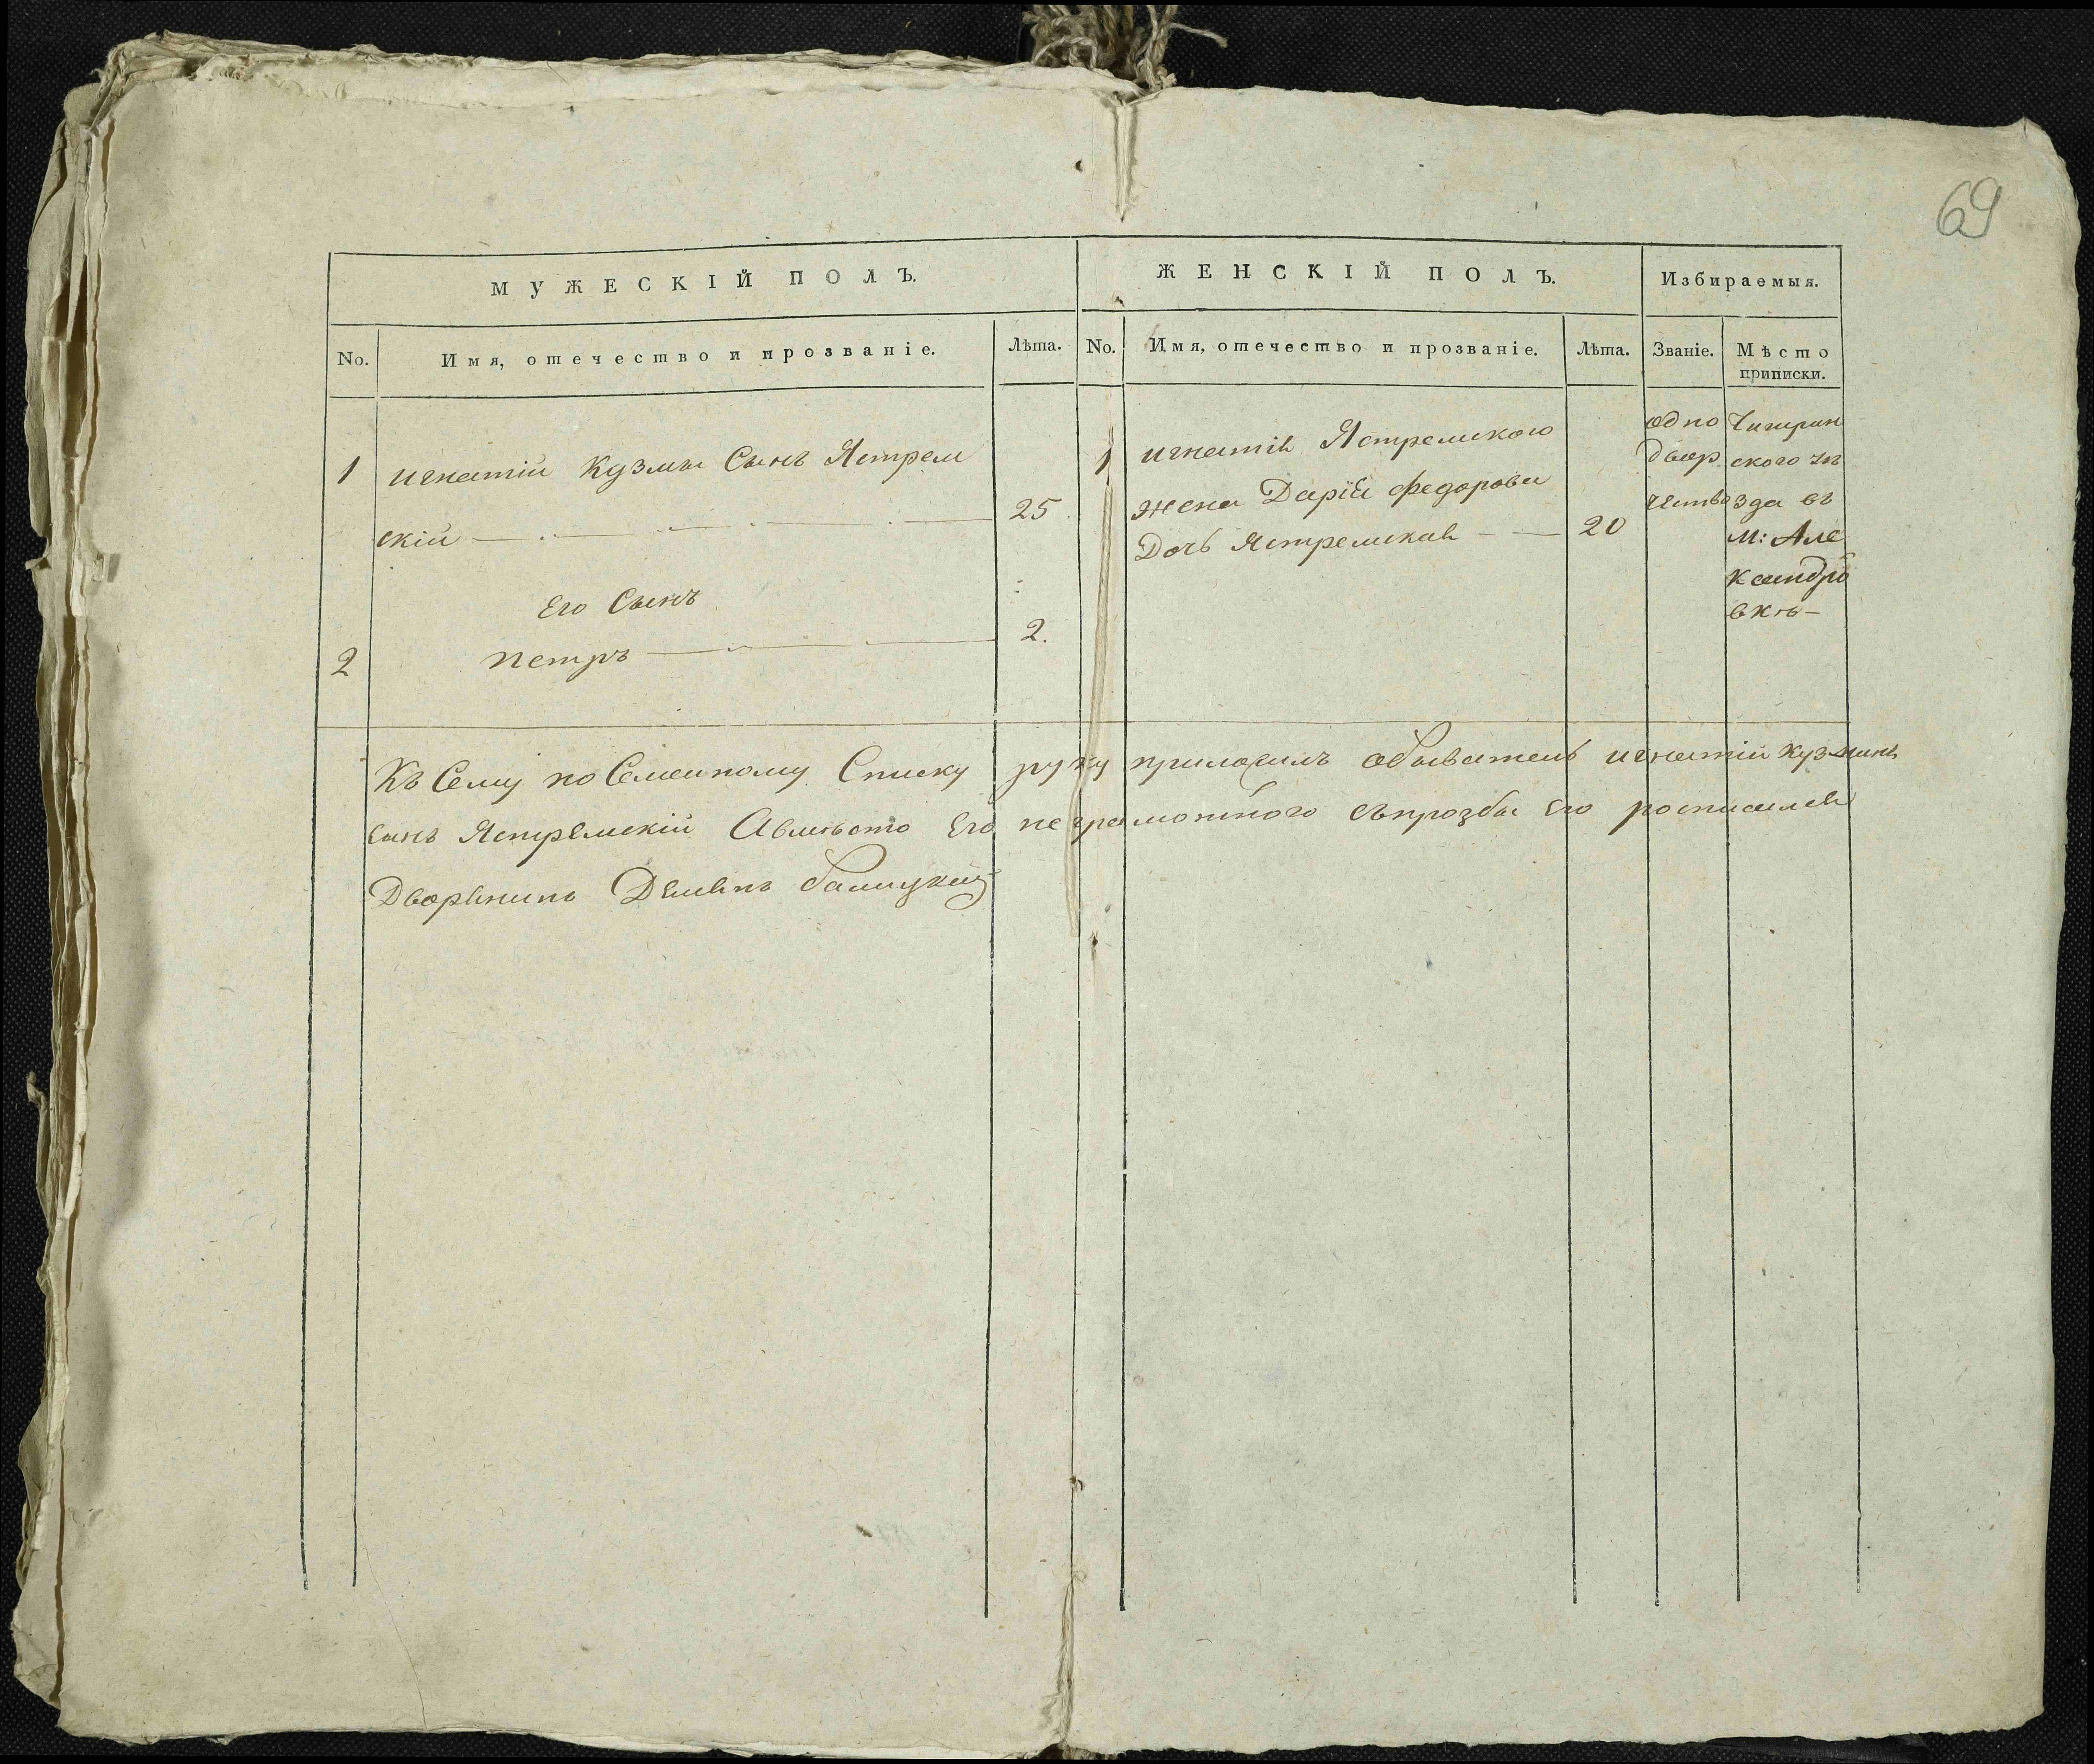 69
МУЖЕСКІЙ ПОЛЪ.
ЖЕНСКІЙ ПОЛЪ.
Избираемыя.
No.
Имя, отечество и прозваніе.
Лѣта.
No.
Имя, отечество и прозваніе.
Лѣта.
Званіе.
Мѣсто
приписки.
1 игнатій Кузмы Сынъ Ястрем
скій 25
Его Сынъ
2 Петръ 2.
1 игнатія Ястремского
жена Дарія федорова
Дочь Ястремская 20
одно
двор
чество
Чигирин
ского уѣ
зда въ
м: Але
ксандро
вкѣ
Къ Сему посемейному Списку руку приложилъ обыватель игнатій Кузминъ
сынъ Ястремскій Авмѣсто Его неграмотного съпрозбы Его росписался
Дворянинъ Демянъ